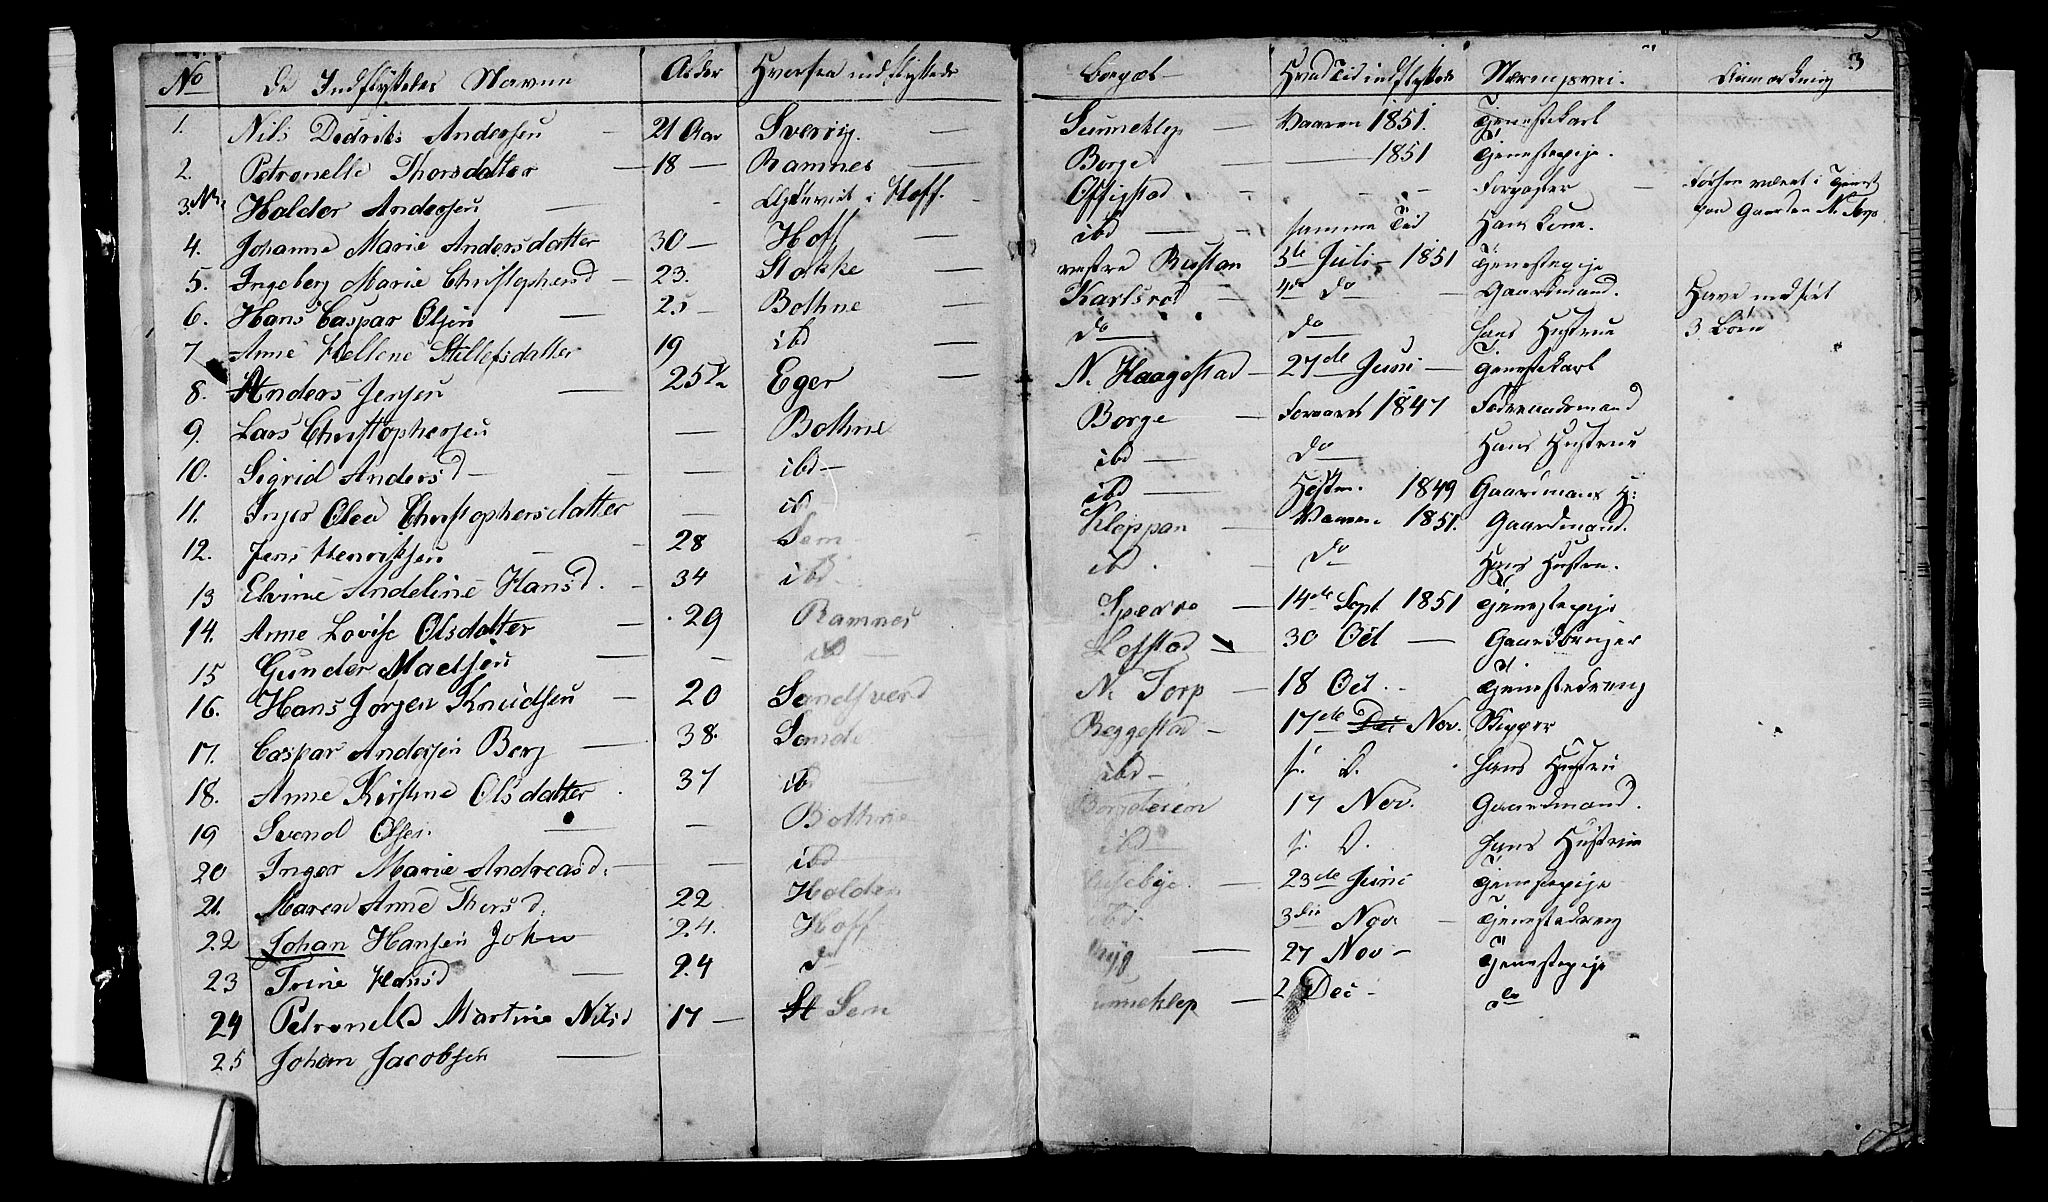 3
No De Indflyttedes Navne Alder Hvorfra indflyttede Bopæl Hvad Tid indflyttede Næringsvei. Anmærkning
1. Nils Dedriks Andersen — 21 Aar Sverig. — Sunneklep — Vaaren 1851. Tjenestekarl
2. Petronelle Thorsdatter — 18 — Ramnes — Borge — 1851 Tjenestepige.
3. Halder Andersen — i Hoff. Forpagter — Forhen været i Tjenest
paa Gaarden N. Torp
4. Johanne Marie Andersdatter 30 — Hoff — ibd — samme Tid Hans Kone.
5. Ingeborg Marie Christophersd — 23. Stokke — vestre Rustan 5te Juli — 1851 Tjenestepige
6. Hans Caspar Olsen — 25 — Bothne — Karlsrød — 4de do — Gaardmand. Have medført
3 Børn
7 Anne Hellene Stillefsdatter 19 ibd do — do — hans Hustrue
8. Anders Jensen — 25 ½ Eger — N. Haagestad — 27de Juni — Tjenestekarl
9. Lars Christophersen — Bothne Borge — Foraaret 1847 Føderaadsmand
10. Sigrid Andersd — — ibd — ibd — do — Hans Hustrue
11. Inger Olea Christophersdatter — ib ibd — Høsten 1849 Gaardmans H:
12. Jens Henriksen — 28 Sem — Kleppan — Vaaren 1851. Gaardmand.
13 Elvine Andeline Hansd. 34 ibd — ibd. — do Hans Hustru.
14. Anne Lovise Olsdatter — 29 Ramnes — 14de Sept 1851 Tjenestepige
15 Gunder Madsen — — ibd — Lefstad 30 Oct — Gaardbruger
16. Hans Jørgen Knudsen — 20 Sandsverd N. Torp — 18 Oct. Tjenestedreng
17. Caspar Andersen Berg — 38. Sande Reggestad — 17de Dec Nov. Skipper
18. Anne Kirstine Olsdatter. 37 ib — ibd — s. D. hans Hustru
19 Svend Olsen — — Bothne 17 Nov. Gaardmand.
20 Inger Marie Andreasd. — — ibd ibd — s. D. hans Hustrue
21. Maren Anne Thorsd. 22 Holden — 23de Juni Tjenestepige
22 Johan Hansen John 24. Hoff ibd 3die Nov. — Tjenestedreng
23 Trine Hansd — 24 do — 27 Nov — Tjenestepige
24 Petronelle Martine Nilsd 17 — St Sem Sunneklep — 2 Dec — do
25 Johan Jacobsen —